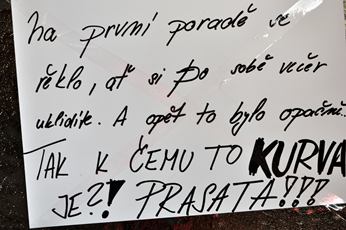 Na první poradě se
řeklo, ať si po sobě večer
uklidíte. A opět to bylo opačně..
TAK K ČEMU TO KURVA
JE?! PRASATA!!!